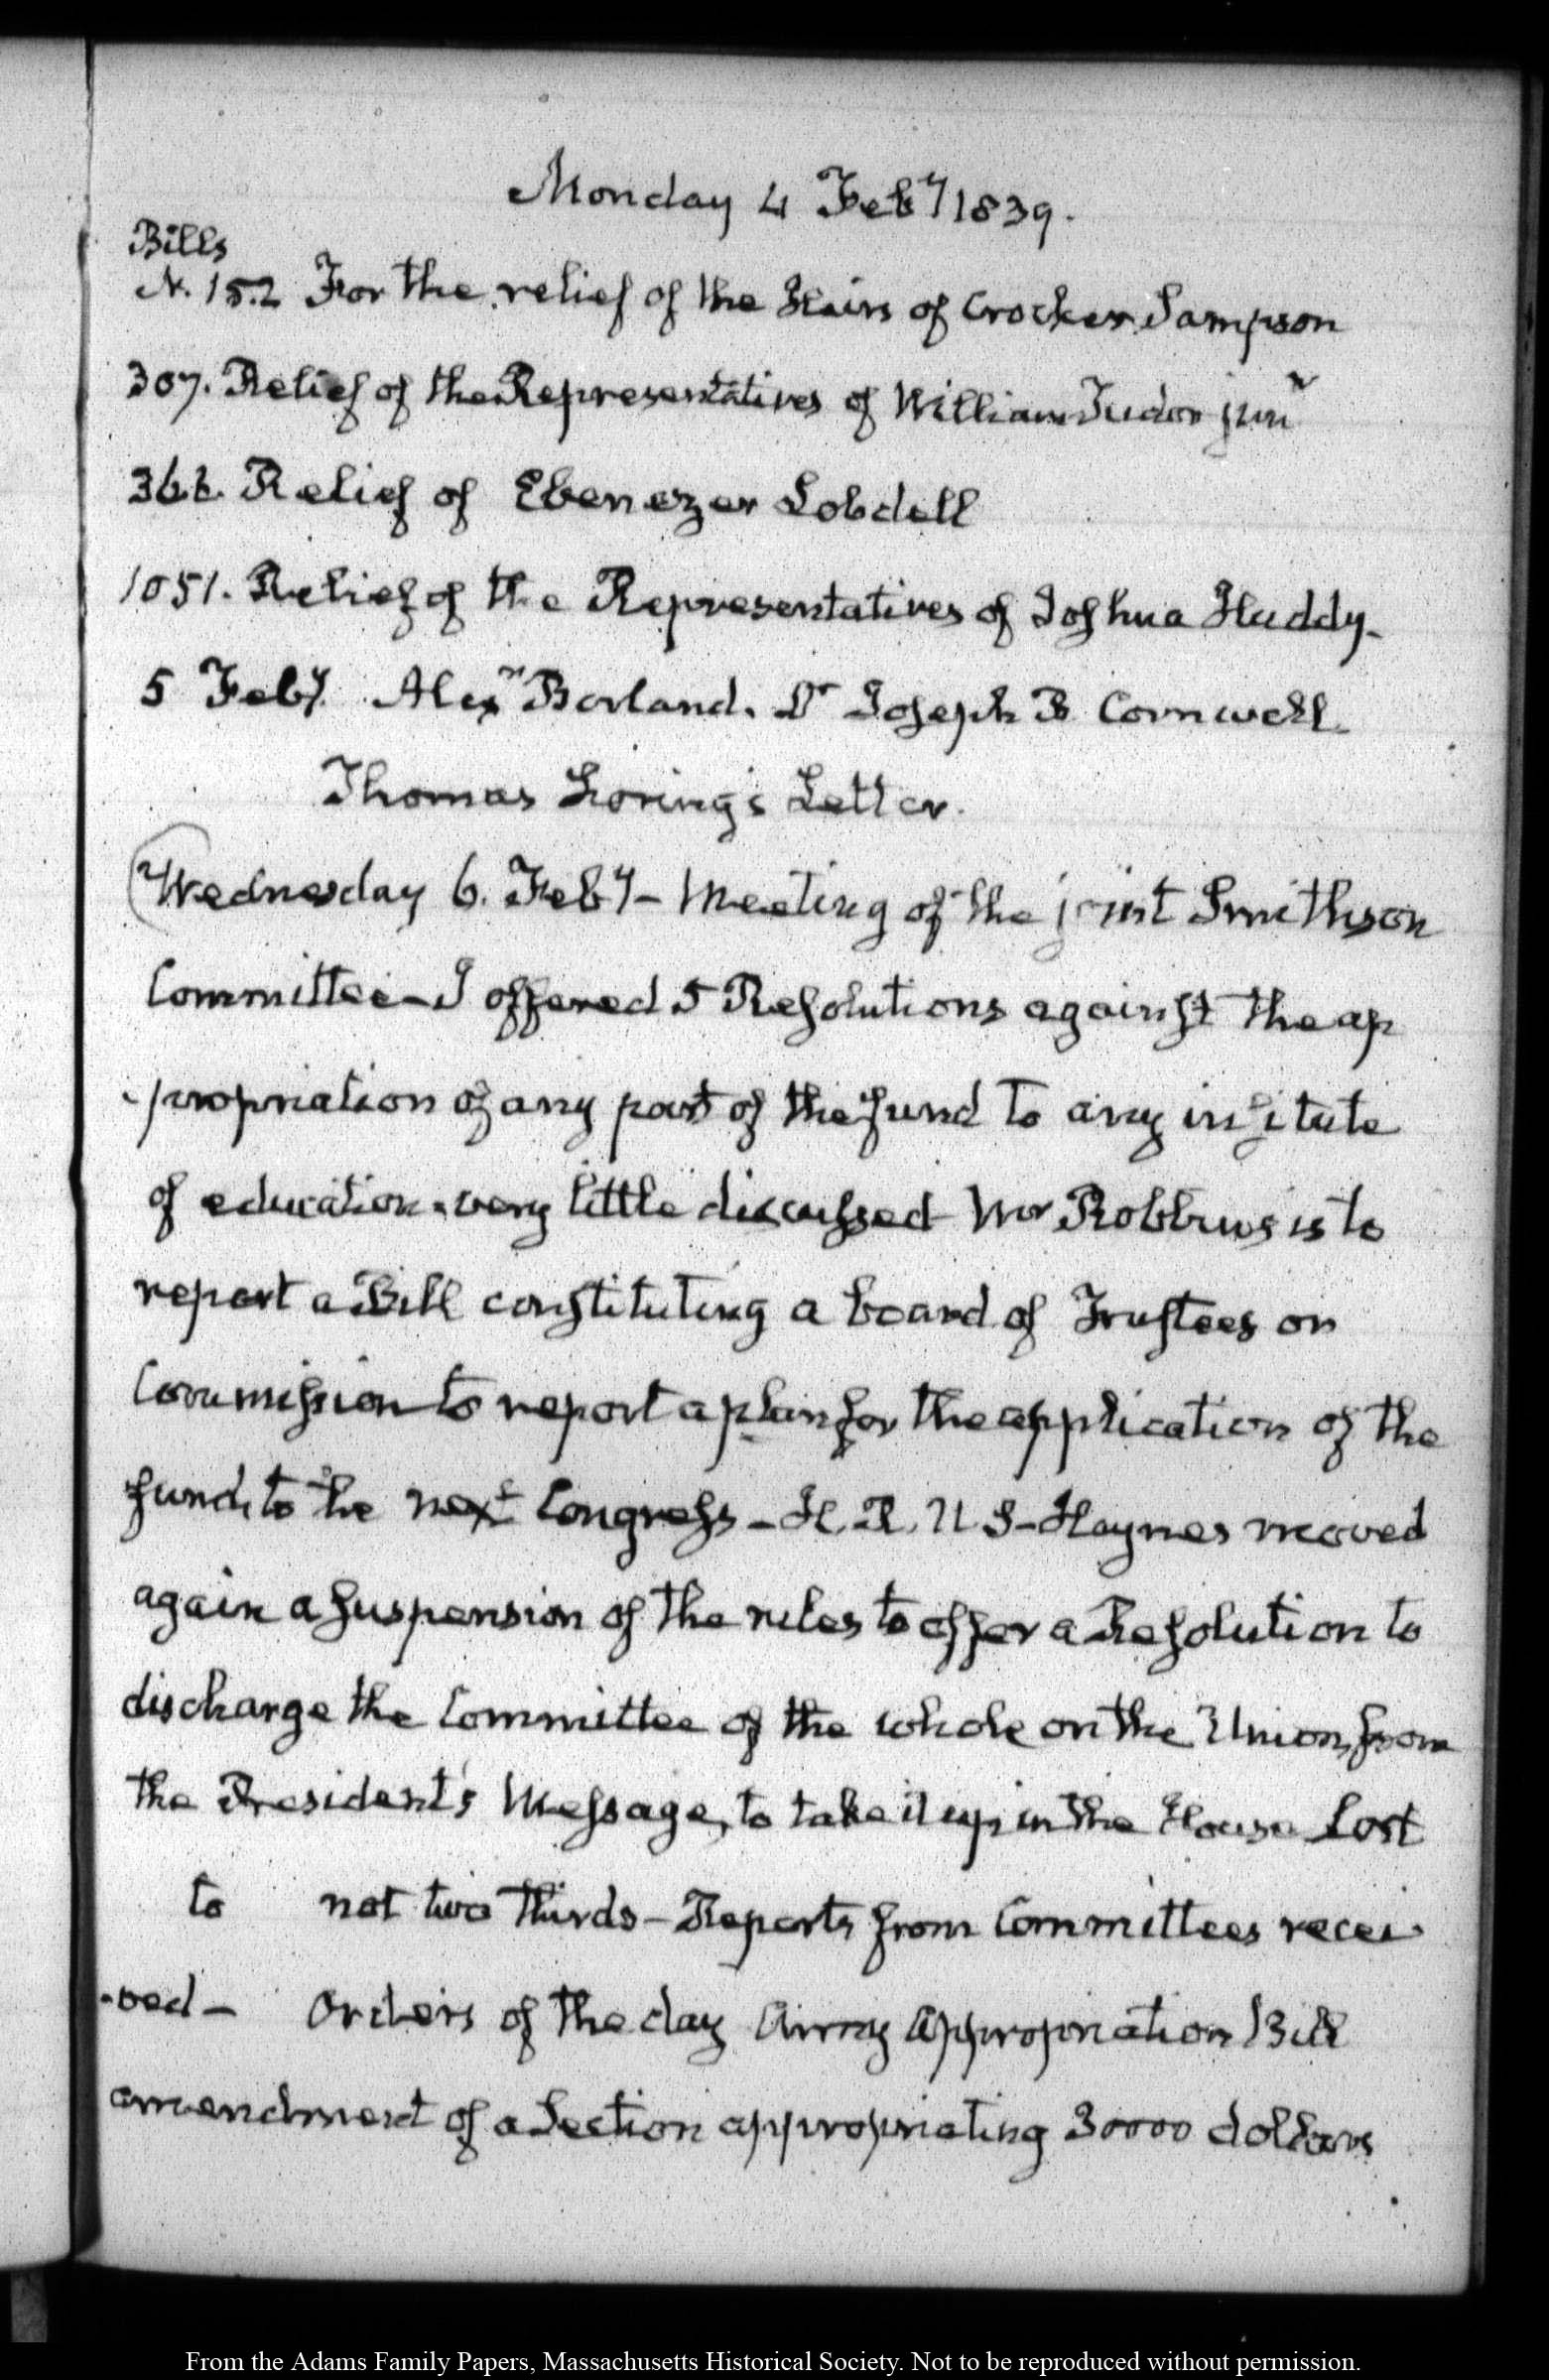 Monday 4 Feby 1839.
Bills
N. 152 For the relief of the Heirs of Crocker Sampson
307. Relief of the Representatives of William Tudor junr
366. Relief of Ebenezer Lobdell
1051. Relief of the Representatives of Joshua Huddy
5 Feby. Alexr Borland. Dr Joseph B Cornwell
Thomas Loring's Letter.
Wednesday 6. Feby - Meeting of the joint Smithson
Committee - I offered 5 Resolutions against the ap
-propriation of any part of the fund to any institute
of education - very little discussed Mr Robbins is to
report a Bill constituting a board of Trustees or
Commission to report a plan for the application of the
fund, to the next Congress - H. R. U S - Haynes moved
again a suspension of the rules to offer a Resolution to
discharge the Committee of the whole on the Union, from
the President's Message, to take it up in the House Lost
to not two thirds - Reports from Committees recei
-ved - Orders of the day Army Appropriation Bill
amendment of a Section appropriating 30000 dollars
From the Adams Family Papers, Massachusetts Historical Society. Not to be reproduced without permission.